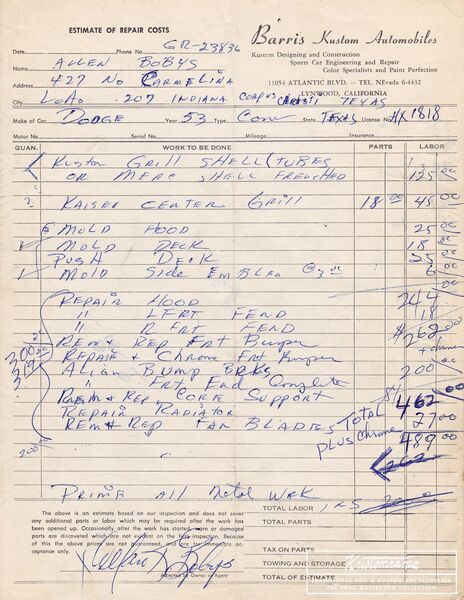 ESTIMATE OF REPAIR COSTS
Barris Kustom Automobiles
Kustom Designing and Construction
Sports Car Engineering and Repair
Color Specialists and Paint Perfection
11054 ATLANTIC BLVD. — TEL. NEvada 6-4432
LYNWOOD, CALIFORNIA
Date Phone No. GR-23836
Name ALLEN BOBYS
Address 427 No CARMELINA
City 207 INDIANA CORPUS CHRISTI TEXAS
Make of Car DODGE Year 53 Type Conv State TEXAS License No. HX1818
Motor No. Serial No. Mileage
QUAN. WORK TO BE DONE PARTS LABOR
Kustom GRILL SHELL (TUBES
OR MERC SHELL FRENCHED 125 00
? KAISER CENTER GRILL 18 00 45 00
MOLD HOOD 25 00
MOLD DECK 18 00
PUSH DECK 25 00
MOLD Side EmBLem @ 3 00 6 00
244
REPAIR HOOD 18
" LEFT FEND $262 00
" R FRT FEND + chrome
REM & REP FRT Bumper
REPAIR & Chrome FRT Bumper
300 00
Align BUMP BRKS 200 00
" FRT End Complete
REM & Rep. CORE Support TOTAL $462
REPAIR RADIATOR 27 00
REM & Rep FAN BLADES PLUS Chrome 489 00
200 00
262
PRIME ALL Metal WRK
The above is an estimate based on our inspection and does not cover any additional parts or labor which may be required after the work has been opened up. Occasionally, after the work has started, worn or damaged parts are discovered which are not evident on the first inspection. Because of this the above prices are not guaranteed, and are for immediate acceptance only.
TOTAL LABOR INS 200 00
TOTAL PARTS
TAX ON PARTS
TOWING AND STORAGE
TOTAL OF ESTIMATE
Accepted by Owner or Agent
Kustomrama